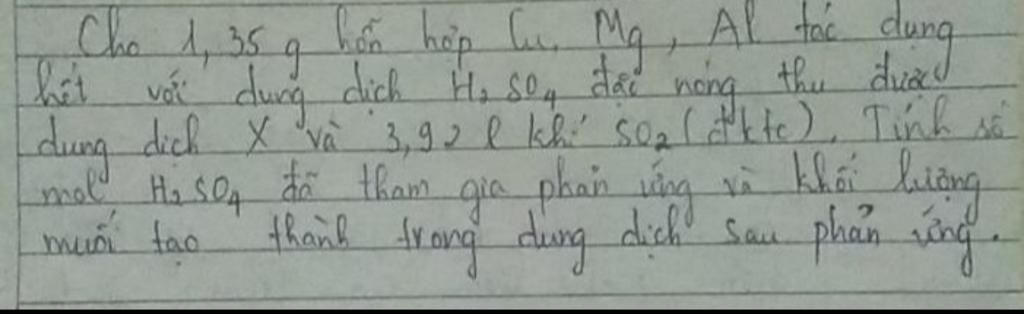 Cho 1,35 g hỗn hợp Cu, Mg, Al tác dụng
hết với dung dịch H₂SO₄ đặc nóng thu được
dung dịch X và 3,92 l khí SO₂ (đktc). Tính số
mol H₂SO₄ đã tham gia phản ứng và khối lượng
muối tạo thành trong dung dịch sau phản ứng.